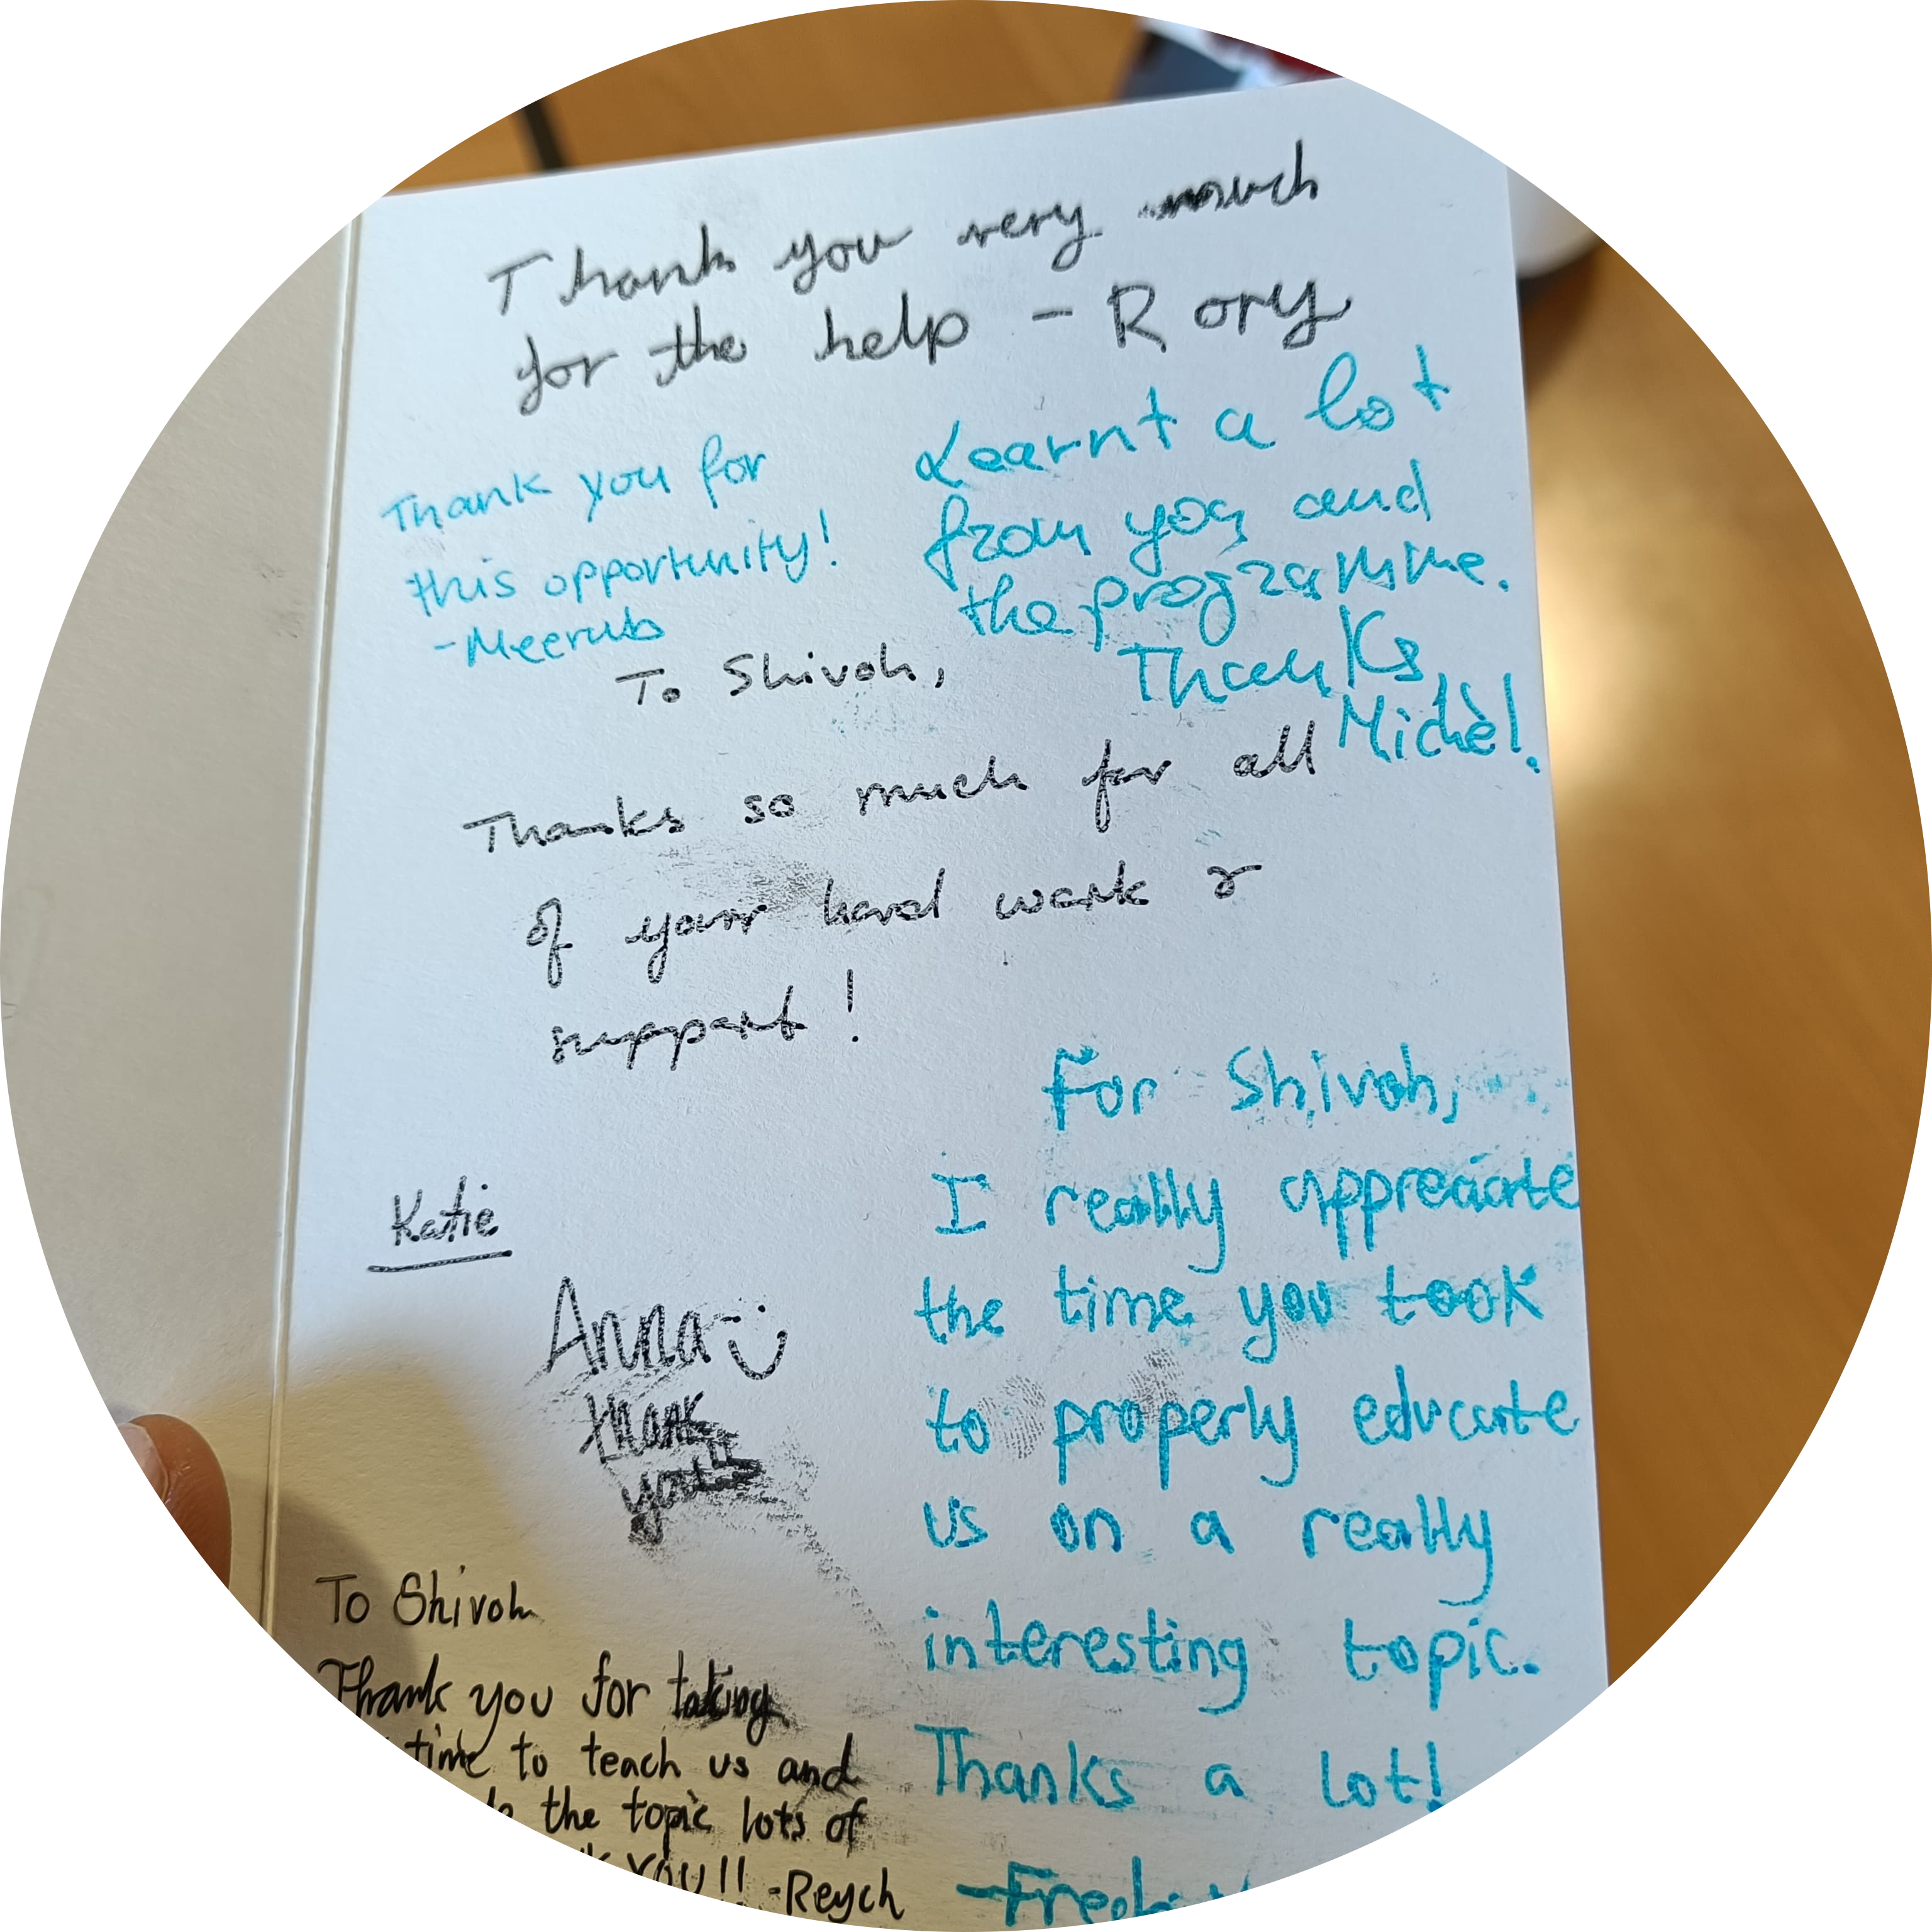 Thank you very much
for the help - Rory
Thank you for
this opportunity!
-Meerub
Learnt a lot
from you and
the programme.
Thanks,
Michèl.
To Shivoh,
Thanks so much for all
of your hard work &
support!
Katie
Anna
thank
you!!
For Shivoh,
I really appreciate
the time you took
to properly educate
us on a really
interesting topic.
Thanks a lot!
To Shivoh
Thank you for taking
time to teach us and
the topic lots of
YOU!! -Reych